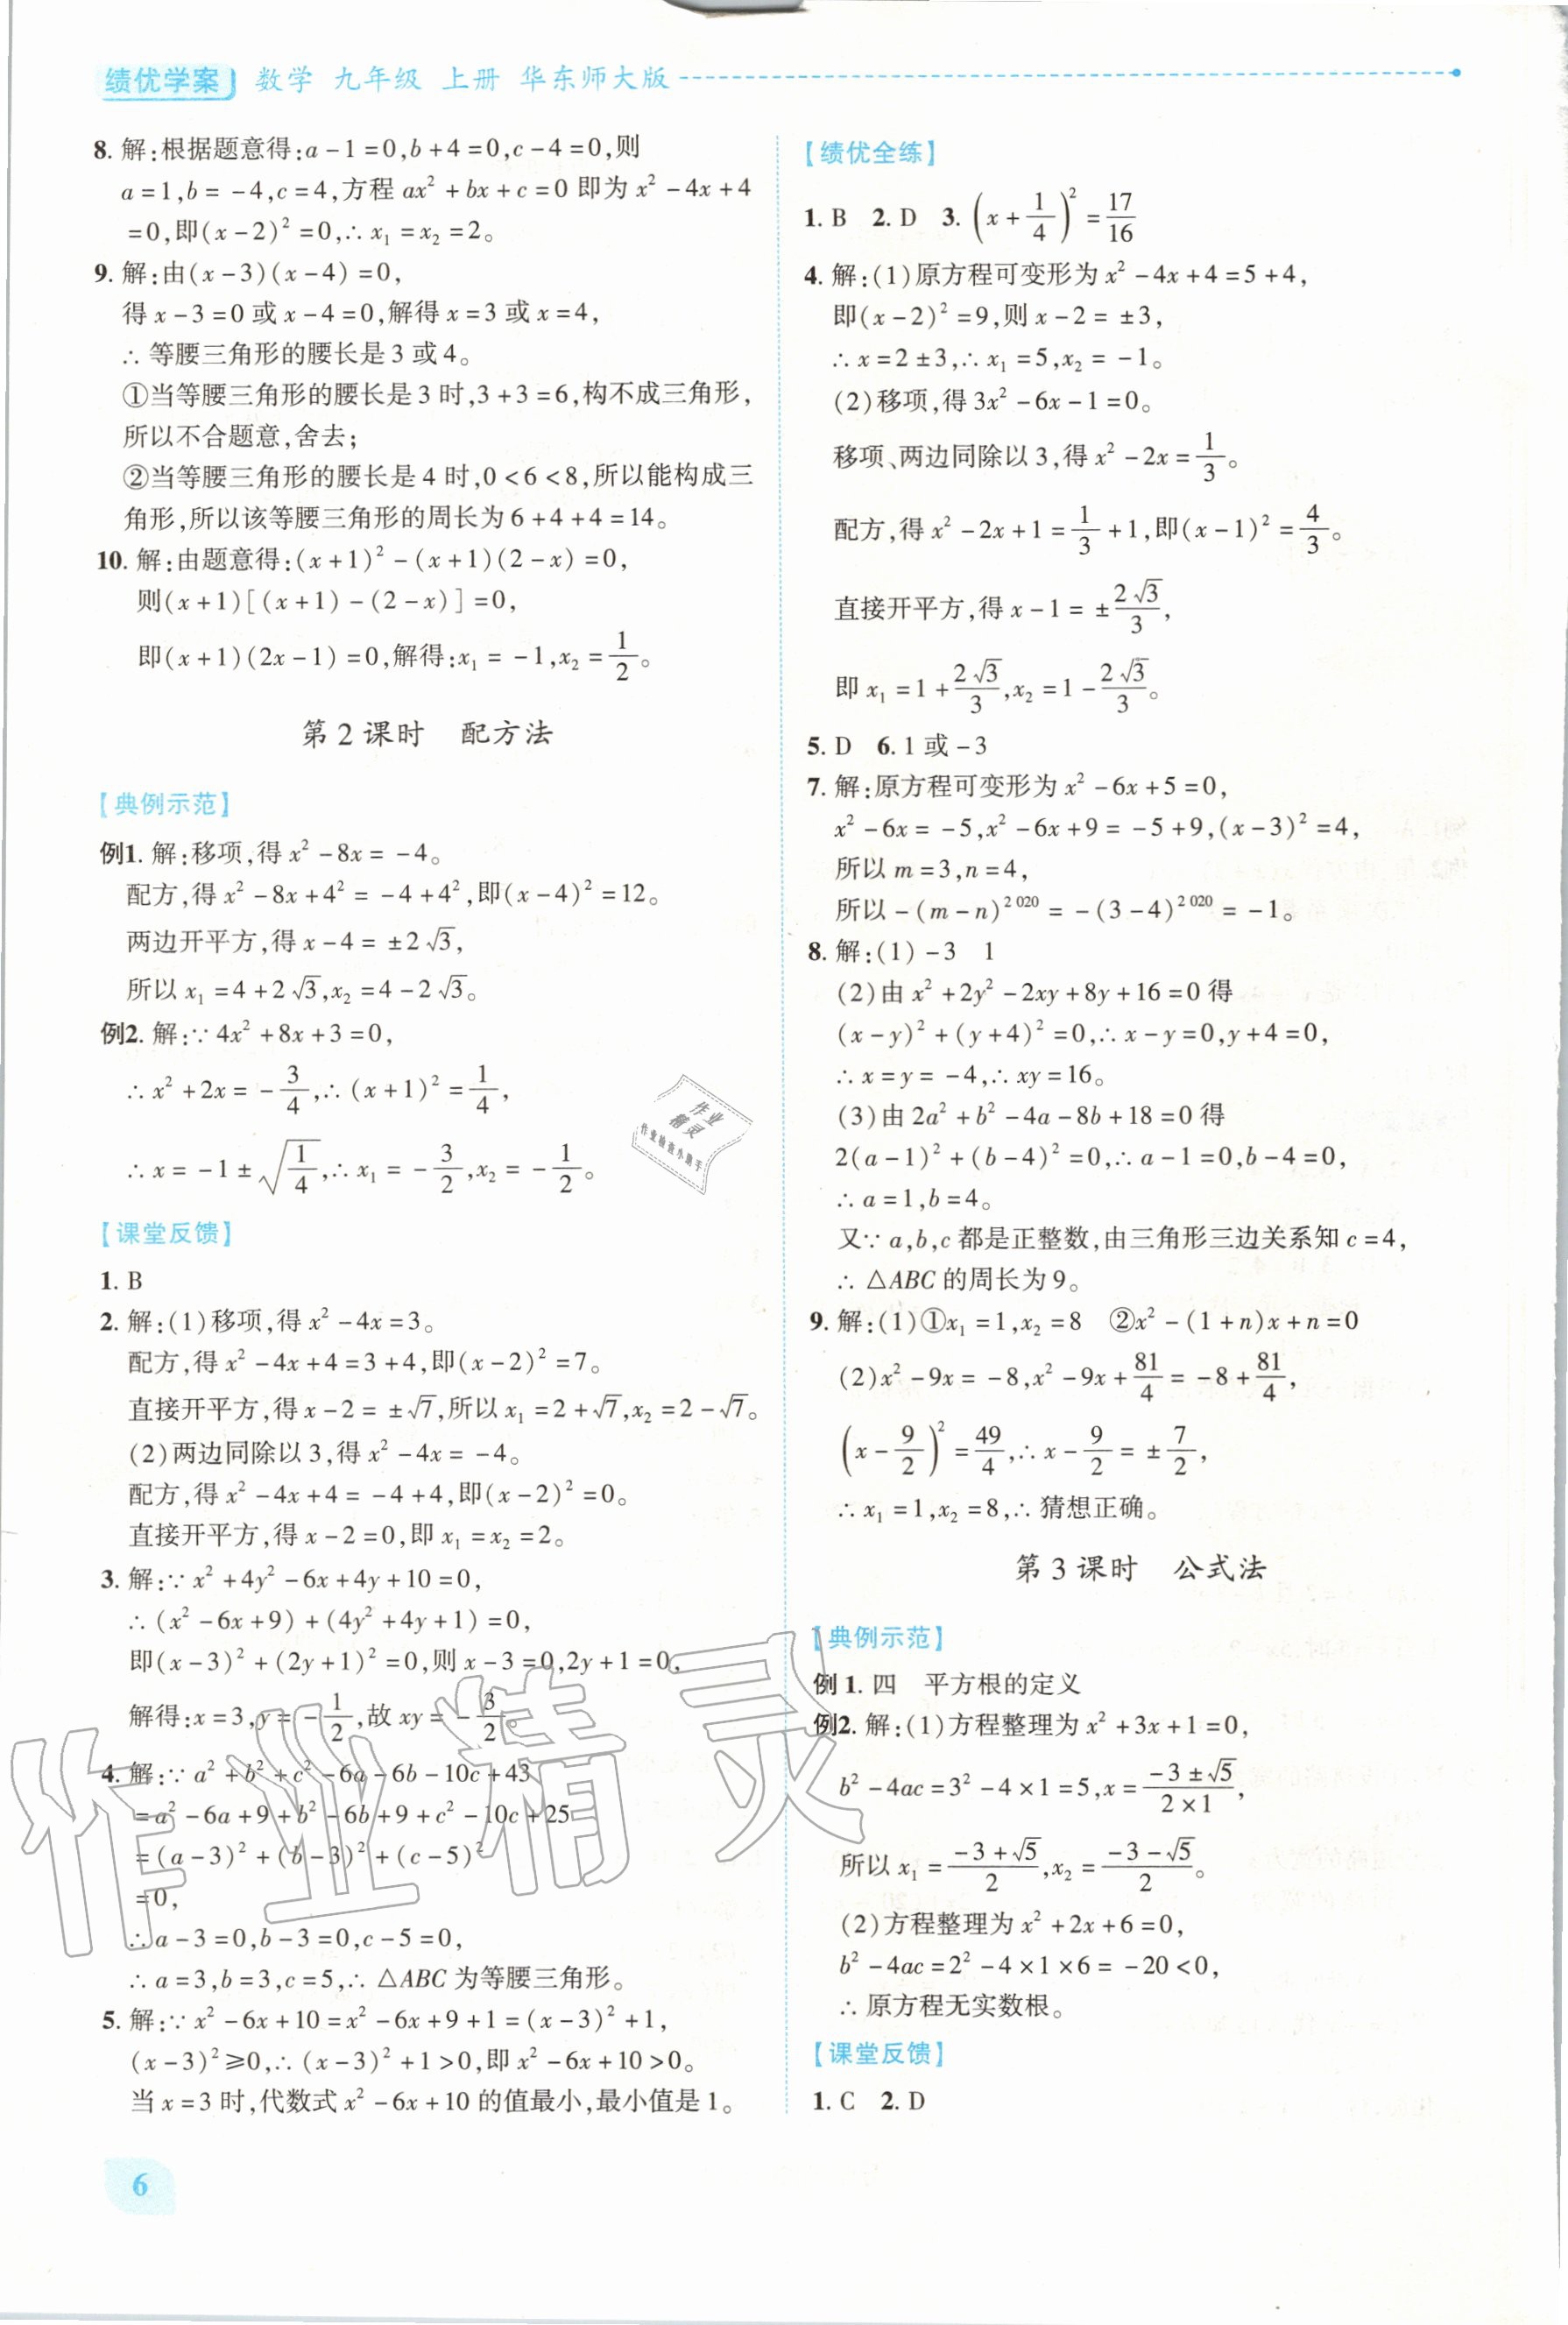 绩优学案 数学 九年级 上册 华东师大版
8. 解:根据题意得:a-1=0,b+4=0,c-4=0,则
a=1,b=-4,c=4,方程 ax²+bx+c=0 即为 x²-4x+4
=0,即(x-2)²=0,∴x₁=x₂=2。
9. 解:由(x-3)(x-4)=0,
得 x-3=0 或 x-4=0,解得 x=3 或 x=4,
∴等腰三角形的腰长是 3 或 4。
①当等腰三角形的腰长是 3 时,3+3=6,构不成三角形,
所以不合题意,舍去;
②当等腰三角形的腰长是 4 时,0<6<8,所以能构成三
角形,所以该等腰三角形的周长为 6+4+4=14。
10. 解:由题意得:(x+1)²-(x+1)(2-x)=0,
则(x+1)[(x+1)-(2-x)]=0,
即(x+1)(2x-1)=0,解得:x₁=-1,x₂=1/2。
第 2 课时 配方法
【典例示范】
例1. 解:移项,得 x²-8x=-4。
配方,得 x²-8x+4²=-4+4²,即(x-4)²=12。
两边开平方,得 x-4=±2√3,
所以 x₁=4+2√3,x₂=4-2√3。
例2. 解:∵4x²+8x+3=0,
∴x²+2x=-3/4,∴(x+1)²=1/4,
∴x=-1±√(1/4),∴x₁=-3/2,x₂=-1/2。
【课堂反馈】
1. B
2. 解:(1)移项,得 x²-4x=3。
配方,得 x²-4x+4=3+4,即(x-2)²=7。
直接开平方,得 x-2=±√7,所以 x₁=2+√7,x₂=2-√7。
(2)两边同除以 3,得 x²-4x=-4。
配方,得 x²-4x+4=-4+4,即(x-2)²=0。
直接开平方,得 x-2=0,即 x₁=x₂=2。
3. 解:∵x²+4y²-6x+4y+10=0,
∴(x²-6x+9)+(4y²+4y+1)=0,
即(x-3)²+(2y+1)²=0,则 x-3=0,2y+1=0,
解得:x=3,y=-1/2,故 xy=-3/2。
4. 解:∵a²+b²+c²-6a-6b-10c+43
=a²-6a+9+b²-6b+9+c²-10c+25
=(a-3)²+(b-3)²+(c-5)²
=0,
∴a-3=0,b-3=0,c-5=0,
∴a=3,b=3,c=5,∴△ABC 为等腰三角形。
5. 解:∵x²-6x+10=x²-6x+9+1=(x-3)²+1,
(x-3)²≥0,∴(x-3)²+1>0,即 x²-6x+10>0。
当 x=3 时,代数式 x²-6x+10 的值最小,最小值是 1。
6
【绩优全练】
1. B 2. D 3. (x+1/4)²=17/16
4. 解:(1)原方程可变形为 x²-4x+4=5+4,
即(x-2)²=9,则 x-2=±3,
∴x=2±3,∴x₁=5,x₂=-1。
(2)移项,得 3x²-6x-1=0。
移项、两边同除以 3,得 x²-2x=1/3。
配方,得 x²-2x+1=1/3+1,即(x-1)²=4/3。
直接开平方,得 x-1=±2√3/3,
即 x₁=1+2√3/3,x₂=1-2√3/3。
5. D 6. 1 或-3
7. 解:原方程可变形为 x²-6x+5=0,
x²-6x=-5,x²-6x+9=-5+9,(x-3)²=4,
所以 m=3,n=4,
所以-(m-n)²⁰²⁰=-(3-4)²⁰²⁰=-1。
8. 解:(1)-3 1
(2)由 x²+2y²-2xy+8y+16=0 得
(x-y)²+(y+4)²=0,∴x-y=0,y+4=0,
∴x=y=-4,∴xy=16。
(3)由 2a²+b²-4a-8b+18=0 得
2(a-1)²+(b-4)²=0,∴a-1=0,b-4=0,
∴a=1,b=4。
又∵a,b,c 都是正整数,由三角形三边关系知 c=4,
∴△ABC 的周长为 9。
9. 解:(1)①x₁=1,x₂=8 ②x²-(1+n)x+n=0
(2)x²-9x=-8,x²-9x+81/4=-8+81/4,
(x-9/2)²=49/4,∴x-9/2=±7/2,
∴x₁=1,x₂=8,∴猜想正确。
第 3 课时 公式法
【典例示范】
例 1. 四 平方根的定义
例2. 解:(1)方程整理为 x²+3x+1=0,
b²-4ac=3²-4×1=5,x=(-3±√5)/(2×1),
所以 x₁=(-3+√5)/2,x₂=(-3-√5)/2。
(2)方程整理为 x²+2x+6=0,
b²-4ac=2²-4×1×6=-20<0,
∴原方程无实数根。
【课堂反馈】
1. C 2. D
作业精灵
作业
精灵
作业检查小助手